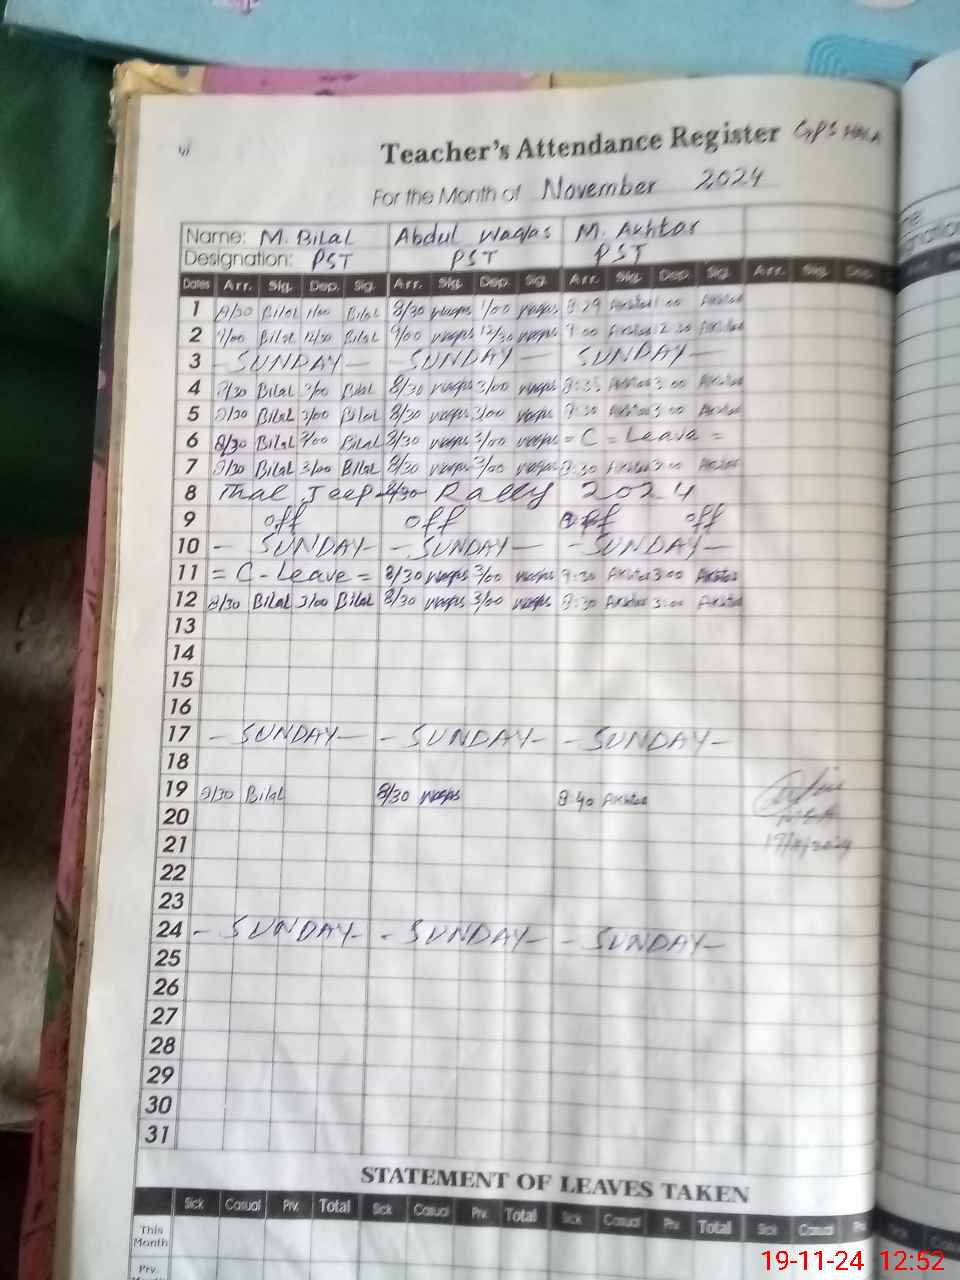 Teacher's Attendance Register GPS
For the Month of November 2024
Name: M. Bilal Abdul Waqas M. Akhtar
Designation: PST PST PST
Dates Arr. Sig. Dep. Sig. Arr. Sig. Dep. Sig. Arr. Sig. Dep. Sig. Arr. Sig. Dep.
1 8/30 Bilal 1/00 Bilal 8/30 waqas 1/00 waqas 8:29 Akhtar 1:00 Akhtar
2 9/00 Bilal 12/30 Bilal 9/00 waqas 12/30 waqas 9:00 Akhtar 2:30 Akhtar
3 - SUNDAY - - SUNDAY - SUNDAY -
4 8/30 Bilal 3/00 Bilal 8/30 waqas 3/00 waqas 8:35 Akhtar 3:00 Akhtar
5 8/30 Bilal 3/00 Bilal 8/30 waqas 3/00 waqas 8:30 Akhtar 3:00 Akhtar
6 8/30 Bilal 3/00 Bilal 8/30 waqas 3/00 waqas = C = Leave =
7 8/30 Bilal 3/00 Bilal 8/30 waqas 3/00 waqas 8:30 Akhtar 3:00 Akhtar
8 Thal Jeep Rally 2024
9 off off off off
10 - SUNDAY - - SUNDAY - - SUNDAY -
11 = C - Leave = 8/30 waqas 3/00 waqas 8:30 Akhtar 3:00 Akhtar
12 8/30 Bilal 3/00 Bilal 8/30 waqas 3/00 waqas 8:30 Akhtar 3:00 Akhtar
13
14
15
16
17 - SUNDAY - - SUNDAY - - SUNDAY -
18
19 8/30 Bilal 8/30 waqas 8:40 Akhtar
20
21 19/11/2024
22
23
24 - SUNDAY - - SUNDAY - - SUNDAY -
25
26
27
28
29
30
31
STATEMENT OF LEAVES TAKEN
Sick Casual Prv. Total Sick Casual Prv. Total Sick Casual Prv. Total Sick Casual
This Month
Prv.
19-11-24 12:52